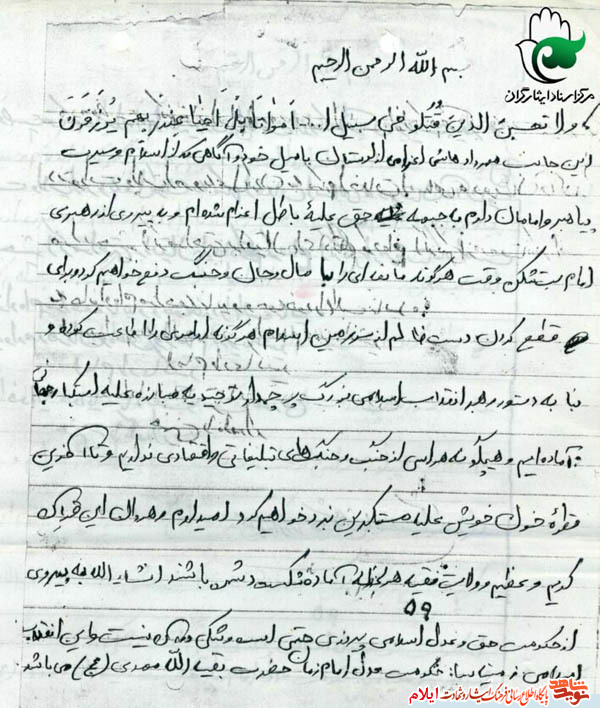 مرکز اسناد ایثارگران
بسم الله الرحمن الرحیم
ولا تحسبن الذین قُتلو فی سبیل ا... امواتا بل احیاء عند ربهم یُرزَقون
این جانب مهرداد هاشمی اعزامی از لرستان با میل خود و آگاهی که از اسلام و سیرت
پیامبر و امامان دارم با جبهه حق علیه باطل اعزام شده‌ام و به پیروی از رهبری
امام بت شکن وقت هر گونه را با مال و جان و جنگ دفع خواهیم کرد و برای
قطع کردن دست ظالم از سرزمین اسلام هر گونه را اطاعت کرده و
بنا به دستور رهبر انقلاب اسلامی بزرگ پرچمدار توحید به مبارزه علیه استکبار جهانی
آماده‌ایم و هیچگونه هراسی از جنگ و جنگ‌های تبلیغاتی و اقتصادی نداریم و تا آخرین
قطره خون خویش علیه مستکبرین نبرد خواهیم کرد امیدوارم رهروان این قرآن
کریم و عظیم و ولایت فقیه هر لحظه آماده شکست دشمن باشند انشاء الله به پیروی
59
از حکومت حق و عدل اسلامی پیروزی حتمی است و شکی نیست و این انقلاب
اسلامی حکومت عدل امام زمان حضرت بقیة الله مهدی (عج) می باشد
نوید شاهد
پایگاه اطلاع رسانی فرهنگ ایثار و شهادت ایلام